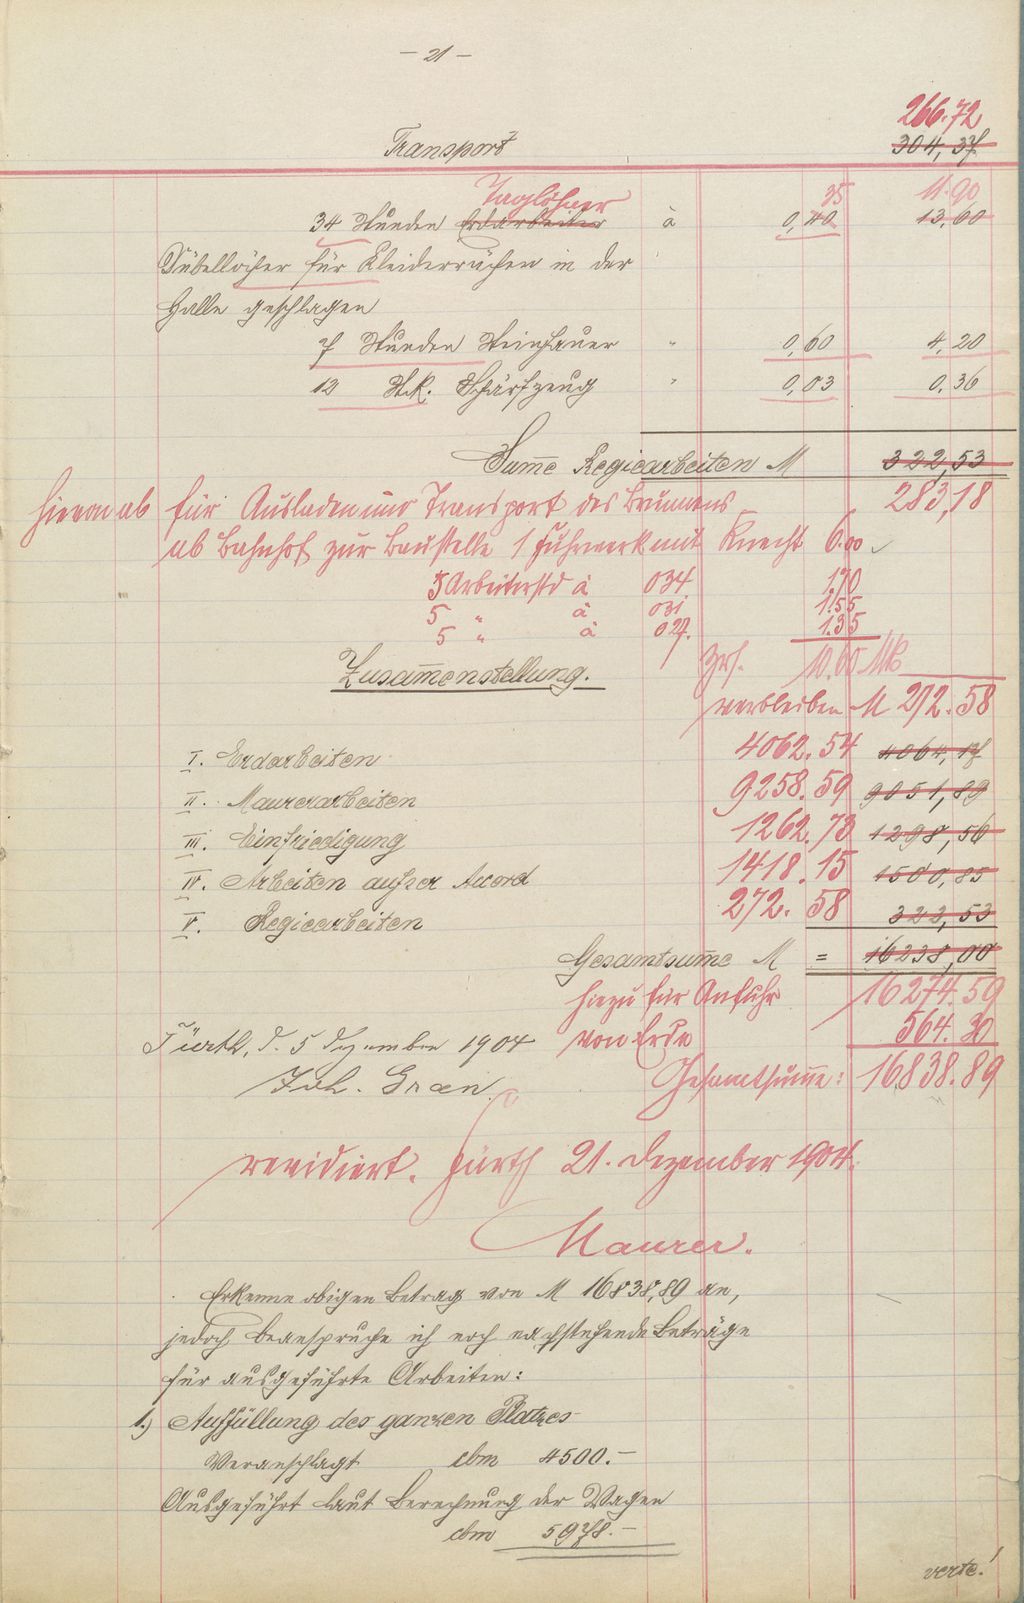 – 21 –
266.72
Transport 304,37
Taglöhner 35 11.90
34 Stunden Erdarbeiter à 0,40 13,60
Dübellöcher für Kleiderrächen in der
Halle geschlagen
7 Stunden Steinhauer " 0,60 4,20
12 Stk. Schärfzeug " 0,03 0,36
Sume Regiearbeiten M 322,53
283,18
hievon ab für Ausladen und Transport des Brunnens
ab Bahnhof zur Baustelle 1 Fuhrwerk mit Knecht 6.00
5 Arbeiterstd à 034 1.70
5 " à 031 1.55
5 " à 027. 1.35
Zusamenstellung. 10.60 Mk
verbleiben M 272.58
I. Erdarbeiten 4062.54 4064,17
II. Maurerarbeiten 9258.59 9051,89
III. Einfriedigung 1262.73 1298,56
IV. Arbeiten außer Accord 1418.15 1500,85
V. Regiearbeiten 272.58 322,53
Gesamtsume M = 16238,00
hiezu für Anfuhr 16274.59
von Erde 564.30
Fürth, d. 5 Dezember 1904
Joh. Gran Gesamtsume: 16838.89
revidiert. Fürth 21. Dezember 1904.
Maurer.
Erkenne obigen Betrag von M 16838,89 an,
jedoch beanspruche ich noch nachstehende Beträge
für ausgeführte Arbeiten:
1.) Auffüllung des ganzen Platzes
Veranschlagt cbm 4500.–
Ausgeführt laut Berechnung der Wagen
cbm 5978.–
verte!